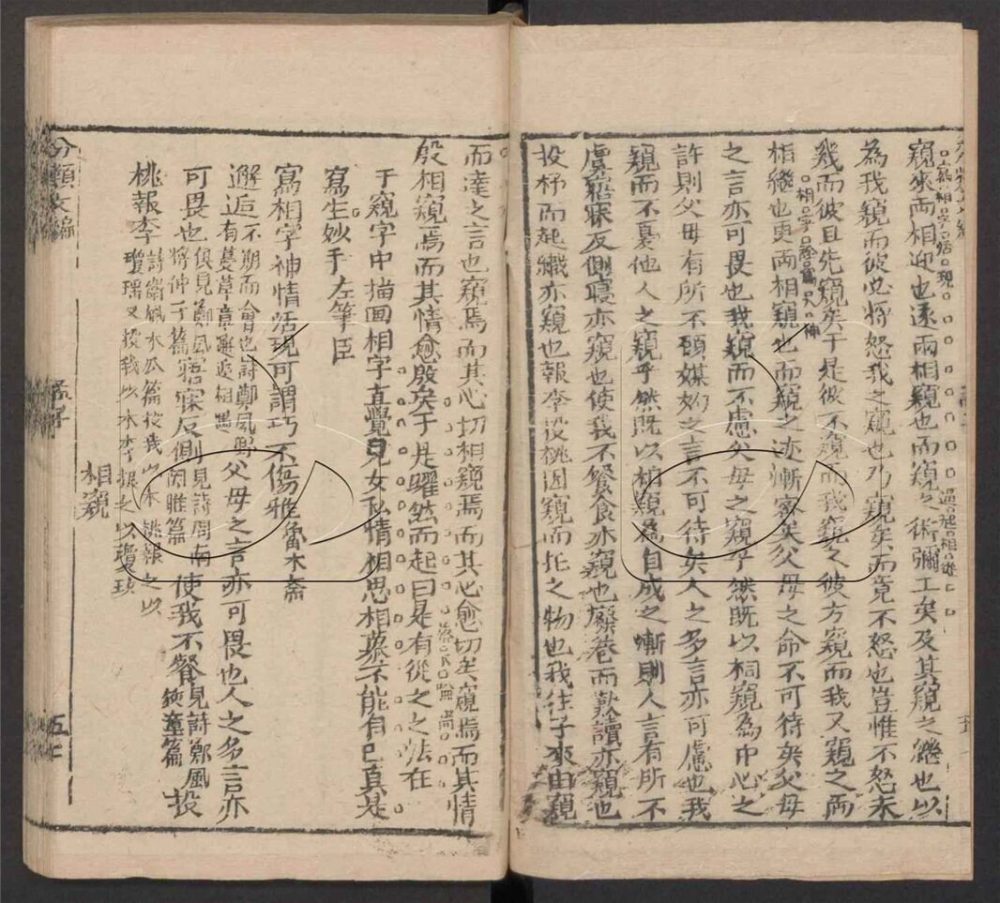 窺來而相迎也遂兩相窺也而窺之術彌工矣及其窺之繼也以
為我窺而彼也將怒我之窺也乃窺矣而竟不怒也豈惟不怒未
幾而彼且先窺矣于是彼不窺而我窺之彼方窺而我又窺之而
相繼也更兩相窺也而窺之迹漸密矣父母之命不可待矣父母
之言亦可畏也我窺而不慮父母之窺乎然既以相窺為中心之
許則父母有所不顧媒妁之言不可待矣人之多言亦可慮也我
窺而不憂他人之窺乎然既以相窺為自成之漸則人言有所不
慮寤寐反側寢亦窺也使我不餐食亦窺也廢巷而歎讀亦窺也
投杼而起織亦窺也報李投桃因窺而托之物也我往子來由窺
而達之言也窺焉而其心切相窺焉而其心愈切矣窺焉而其情
殷相窺焉而其情愈殷矣于是躍然而起曰是有從之之法在
于窺字中描画相字直覺兒女私情相思相慕不能自已真是
寫生妙手 左筆臣
寫相字神情活現可謂巧不傷雅 魯木斋
邂逅 不期而會也詩鄭風野有蔓草章邂逅相遇 父母之言亦可畏也人之多言亦
可畏也 俱見鄭風將仲子篇 寤寐反側 見詩周南関雎篇 使我不餐 見詩鄭風狡童篇 投
桃報李 詩衛風木瓜篇投我以木桃報之以瓊瑶又投我以木李報之以瓊玖
相窺
分類文編
孟子
五七